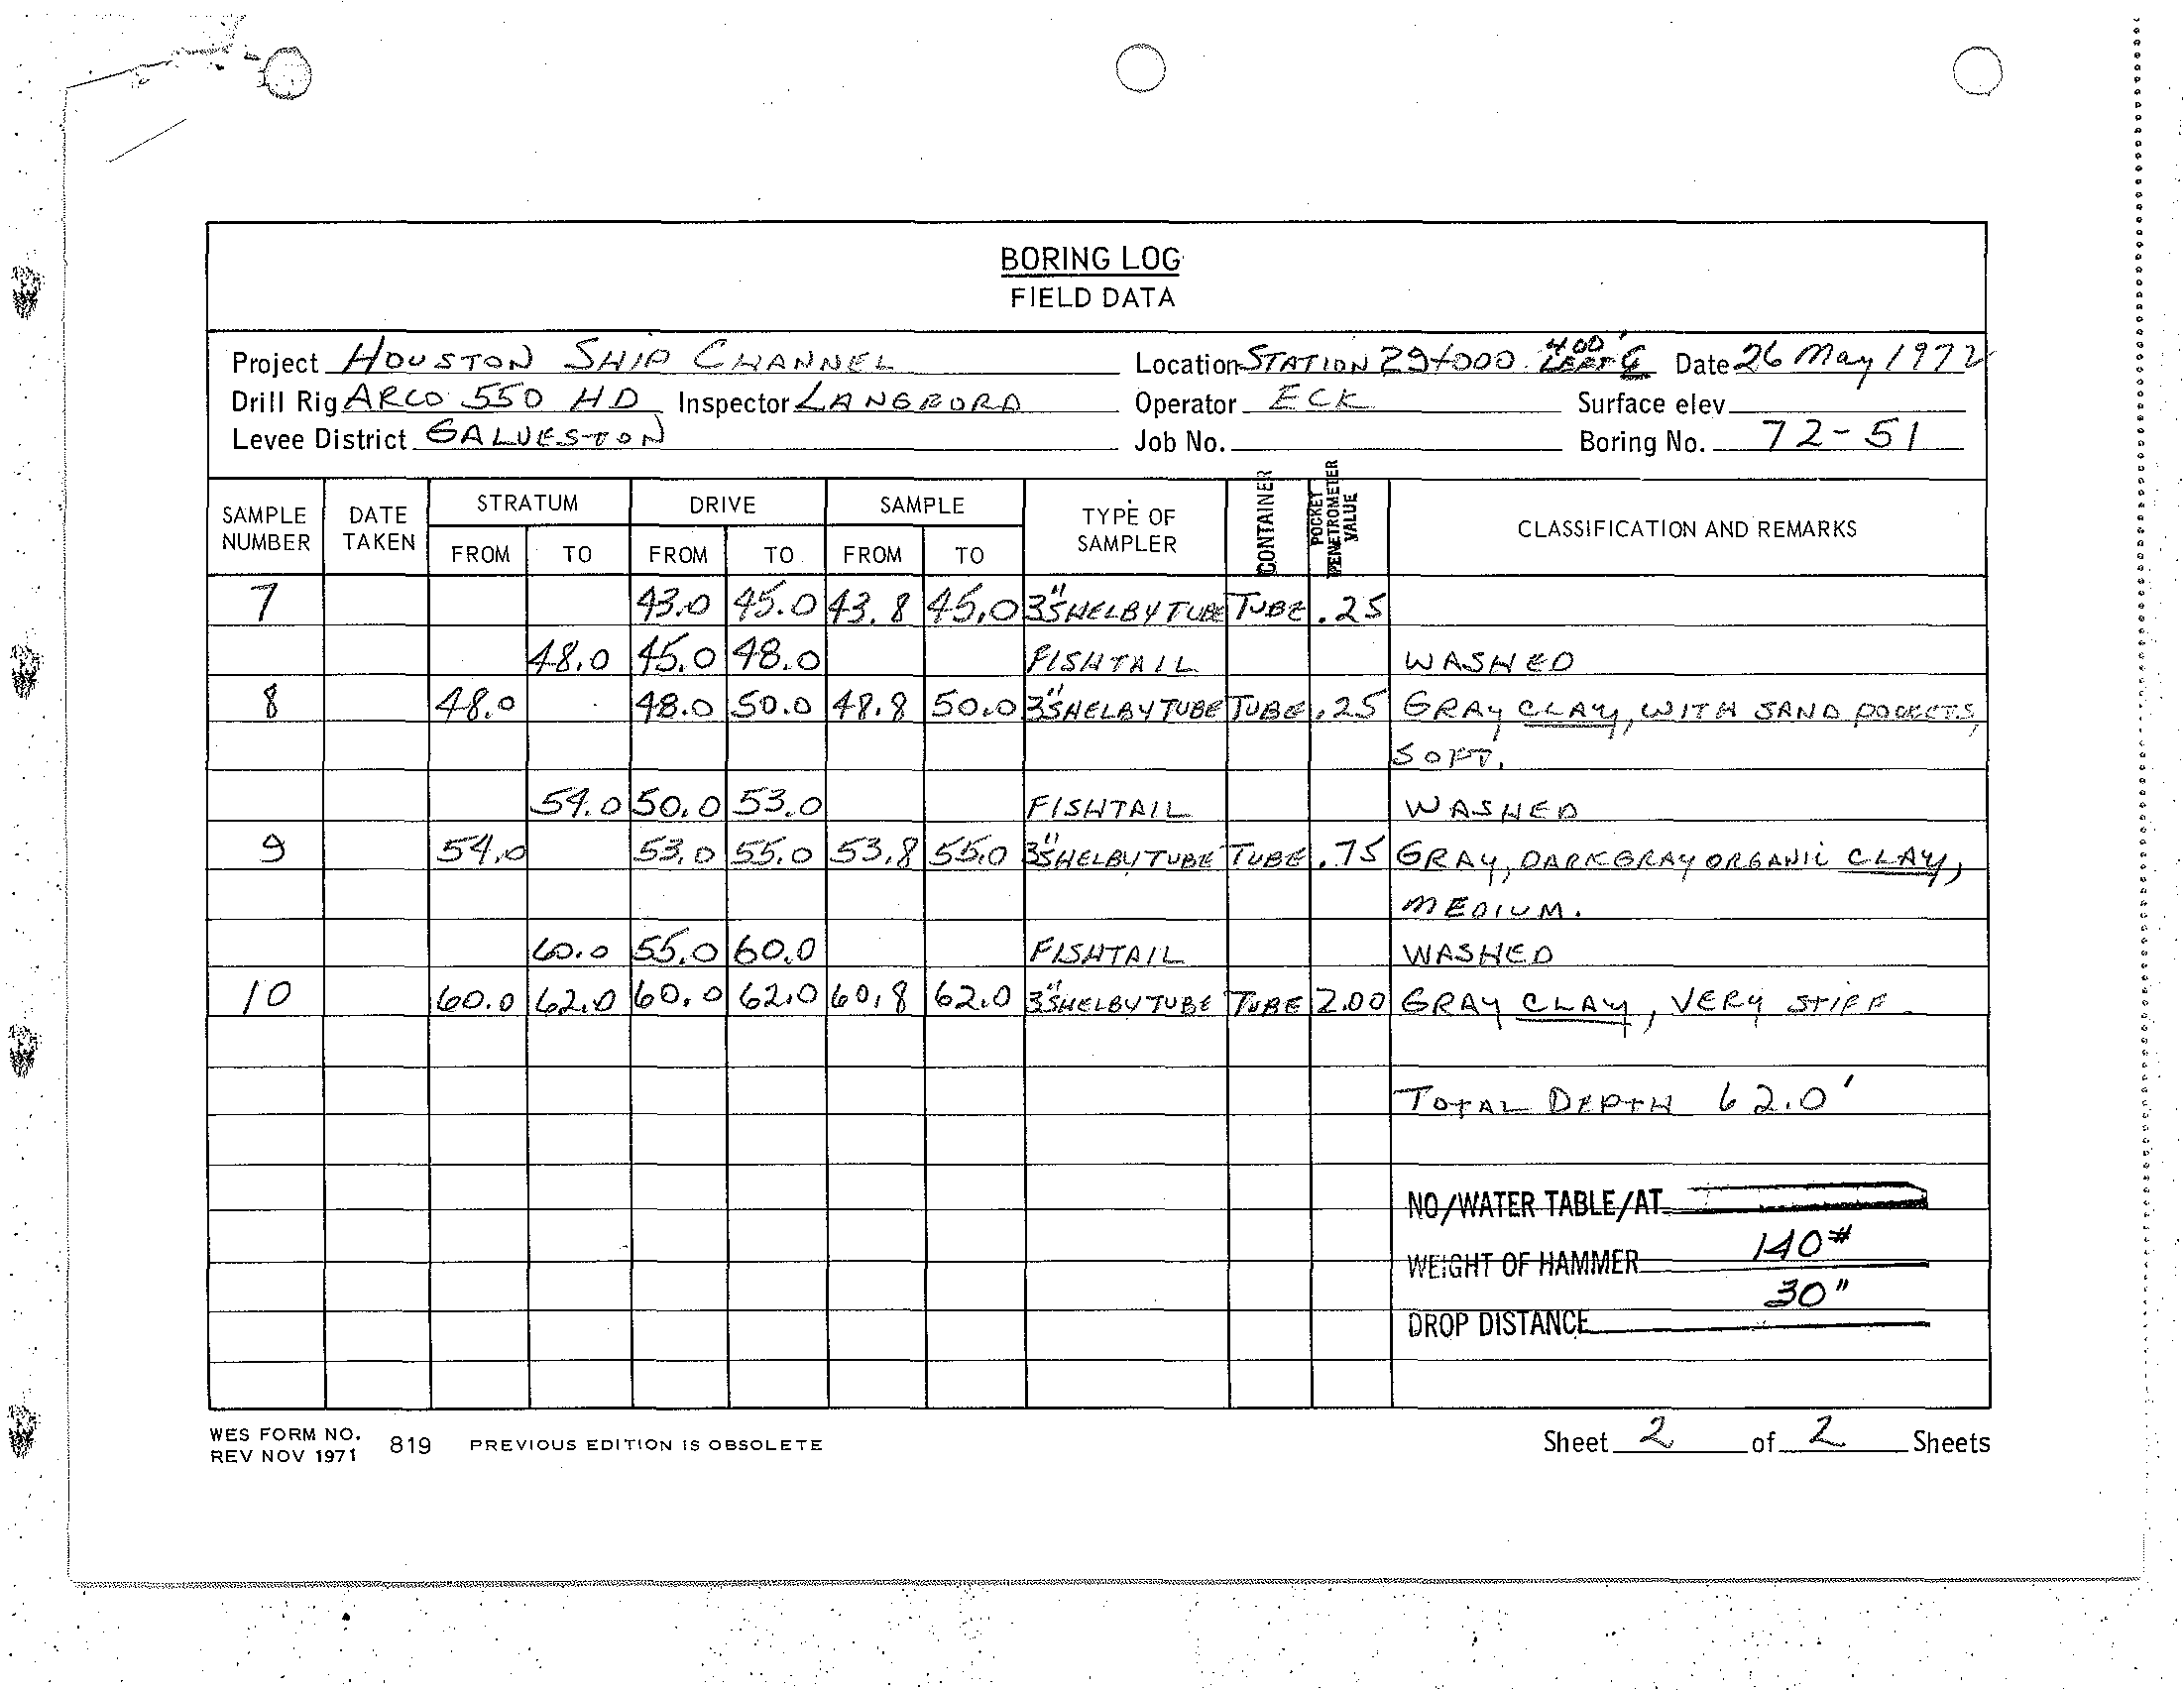 BORING LOG
FIELD DATA
Project HOUSTON SHIP CHANNEL Location STATION 29+000 400' LEFT ℄ Date 26 May 1972
Drill Rig ARCO 550 HD Inspector LANGFORD Operator ECK Surface elev.
Levee District GALVESTON Job No. Boring No. 72-51
SAMPLE NUMBER DATE TAKEN STRATUM FROM TO DRIVE FROM TO SAMPLE FROM TO TYPE OF SAMPLER CONTAINER POCKET PENETROMETER VALUE CLASSIFICATION AND REMARKS
7 43.0 45.0 43.8 45.0 3" SHELBY TUBE TUBE .25
48.0 45.0 48.0 FISHTAIL WASHED
8 48.0 48.0 50.0 48.8 50.0 3" SHELBY TUBE TUBE .25 GRAY CLAY, WITH SAND POCKETS,
SOFT.
54.0 50.0 53.0 FISHTAIL WASHED
9 54.0 53.0 55.0 53.8 55.0 3" SHELBY TUBE TUBE .75 GRAY, DARK GRAY ORGANIC CLAY,
MEDIUM.
60.0 55.0 60.0 FISHTAIL WASHED
10 60.0 62.0 60.0 62.0 60.8 62.0 3" SHELBY TUBE TUBE 2.00 GRAY CLAY, VERY STIFF
TOTAL DEPTH 62.0'
NO/WATER TABLE/AT
WEIGHT OF HAMMER 140#
DROP DISTANCE 30"
WES FORM NO. 819 PREVIOUS EDITION IS OBSOLETE
REV NOV 1971
Sheet 2 of 2 Sheets